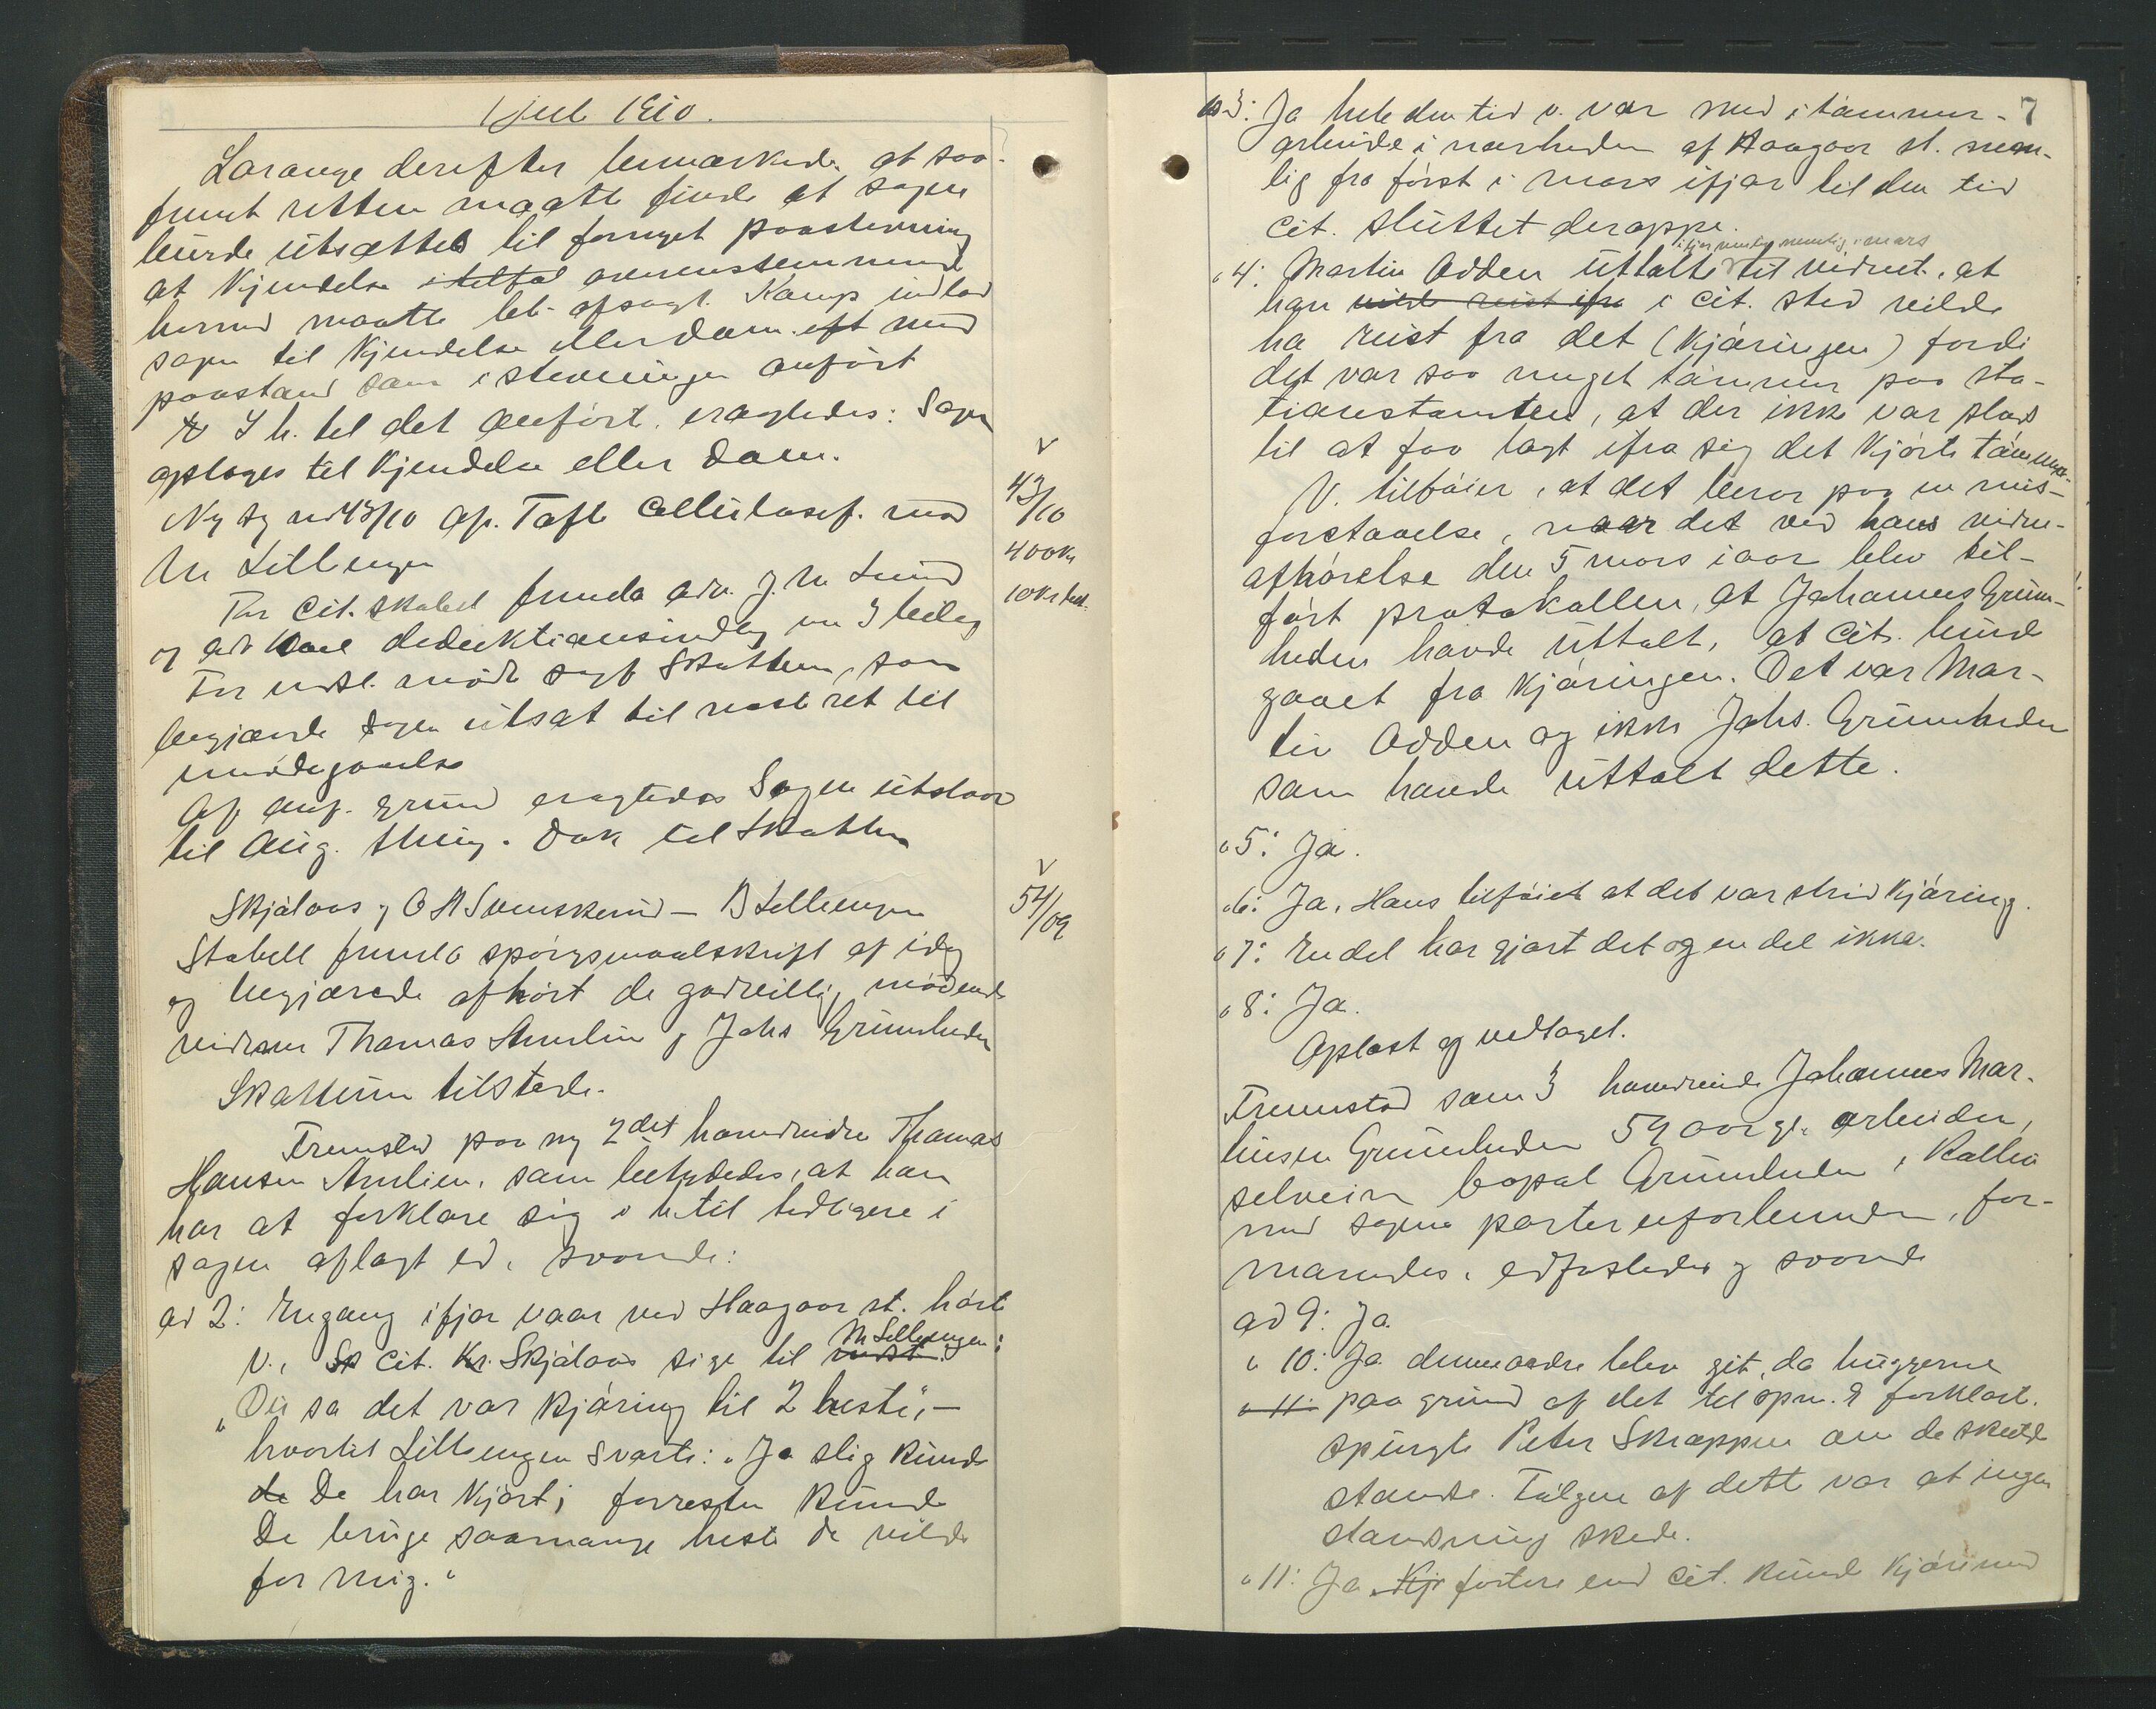 1 Juli 1910.
Lorange derefter bemærkede at saa-
fremt retten maatte finde at sagen
burde utsættes til fornyet paastevning
at kjendelse i tilfæl overensstemmende
hermed maatte bli afsagt. Kamp indlod
sagen til kjendelse eller dom. eft med
paastand som i stevningen anført
I h. til det anført. eragtedes: Sagen
optages til kjendelse eller dom.
Ny sg no 43/10 Ap. Tofte Cellulosef. mod
M Sillengen
For Cit. skabel fremla adv. J. M. Lund
og deduktionsindlæg m 3 bilag
For indst. mødte sagf Skattum, som
begjærede sagen utsat til næste ret til
imødegaaelse
Af anf. grund eragtedes Sagen utstaar
til Aug. thing. Dok til Skattum
v
43/10
400 kr
10 kr bet.
Skjølaas og O A Svenskerud – B Sillengen
Stabell fremla spørgsmaalskrift af idag
og begjærede afhørt de godvillig mødende
vidner Thomas Amlien og Johs Grimsheden
Skattum tilstede.
v
54/09
Fremsto paa ny 2det hovedvidne Thomas
Hansen Amlien, som betydedes, at han
har at forklare sig i h. til tidligere i
sagen aflagt ed, svarende:
ad 2: Engang ifjor vaar ved Haagaar st. hørte
v., Sk cit. Kr. Skjølaas sige til indst. M Sillengen:
"Du sa det var kjøring til 2 heste", –
hvortil Sillengen svarte: "Ja slig kunde
de De har kjørt; forresten kunde
De bruge saamange heste de vilde
for mig."
7
" 3: Ja hele den tid v. var med i tømmer-
arbeide i nærheden af Haagaar st. nem-
lig fra først i mars ifjor til den tid
cit. sluttet deroppe.
" 4: Martin Odden uttalte ifjor nemlig i mars til vidnet, at
han vilde reist ifra i cit. sted vilde
ha reist fra det (kjøringen) fordi
det var saa meget tømmer paa sta-
tionstomten, at der ikke var plads
til at faa lagt ifra sig det kjørte tømmer.
V. tilføier, at det beror paa en mis-
forstaaelse, naar det ved hans vidne-
afhørelse den 5 mars iaar blev til-
ført protokollen, at Johannes Grims-
heden havde uttalt, at cit. burde
gaaet fra kjøringen. Det var Mar-
tin Odden og ikke Johs. Grimsheden
som havde uttalt dette.
" 5: Ja.
" 6: Ja. Hans tilføiet at det var strid kjøring.
" 7: En del har gjort det og en del ikke.
" 8: Ja.
Oplæst og vedtaget.
Fremstod som 3 hovedvidne Johannes Mar-
tinsen Grimsheden 59 aar g. arbeider,
selveier bopæl Grimsheden i
med sagens parter uforbunden, for-
manedes, edfæstedes og svarende
ad 9: Ja.
" 10: Ja denne ordre blev git, da huggerne
" 11: paa grund af det til spm. 9 forklart.
spurgte Peter Skrappen om de skulde
standse. Følgen af dette var at ingen
standsning skede.
" 11: Ja. Kjr fortere end cit. kunde kjøre med